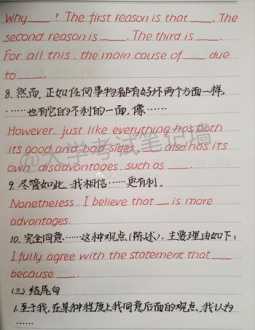 Why ___? The first reason is that ___. The
second reason is ___. The third is ___.
For all this, the main cause of ___ due
to ___.
8. 然而, 正如任何事物都有好坏两个方面一样,
……也有它的不利的一面, 像……
However, just like everything has both
its good and bad sides, ___ also has its
own disadvantages, such as ___.
9. 尽管如此, 我相信……更有利。
Nonetheless, I believe that ___ is more
advantageous.
10. 完全同意……这种观点(陈述), 主要理由如下:
I fully agree with the statement that ___
because ___.
(3) 结尾句
1. 至于我, 在某种程度上我同意后面的观点, 我认为
……